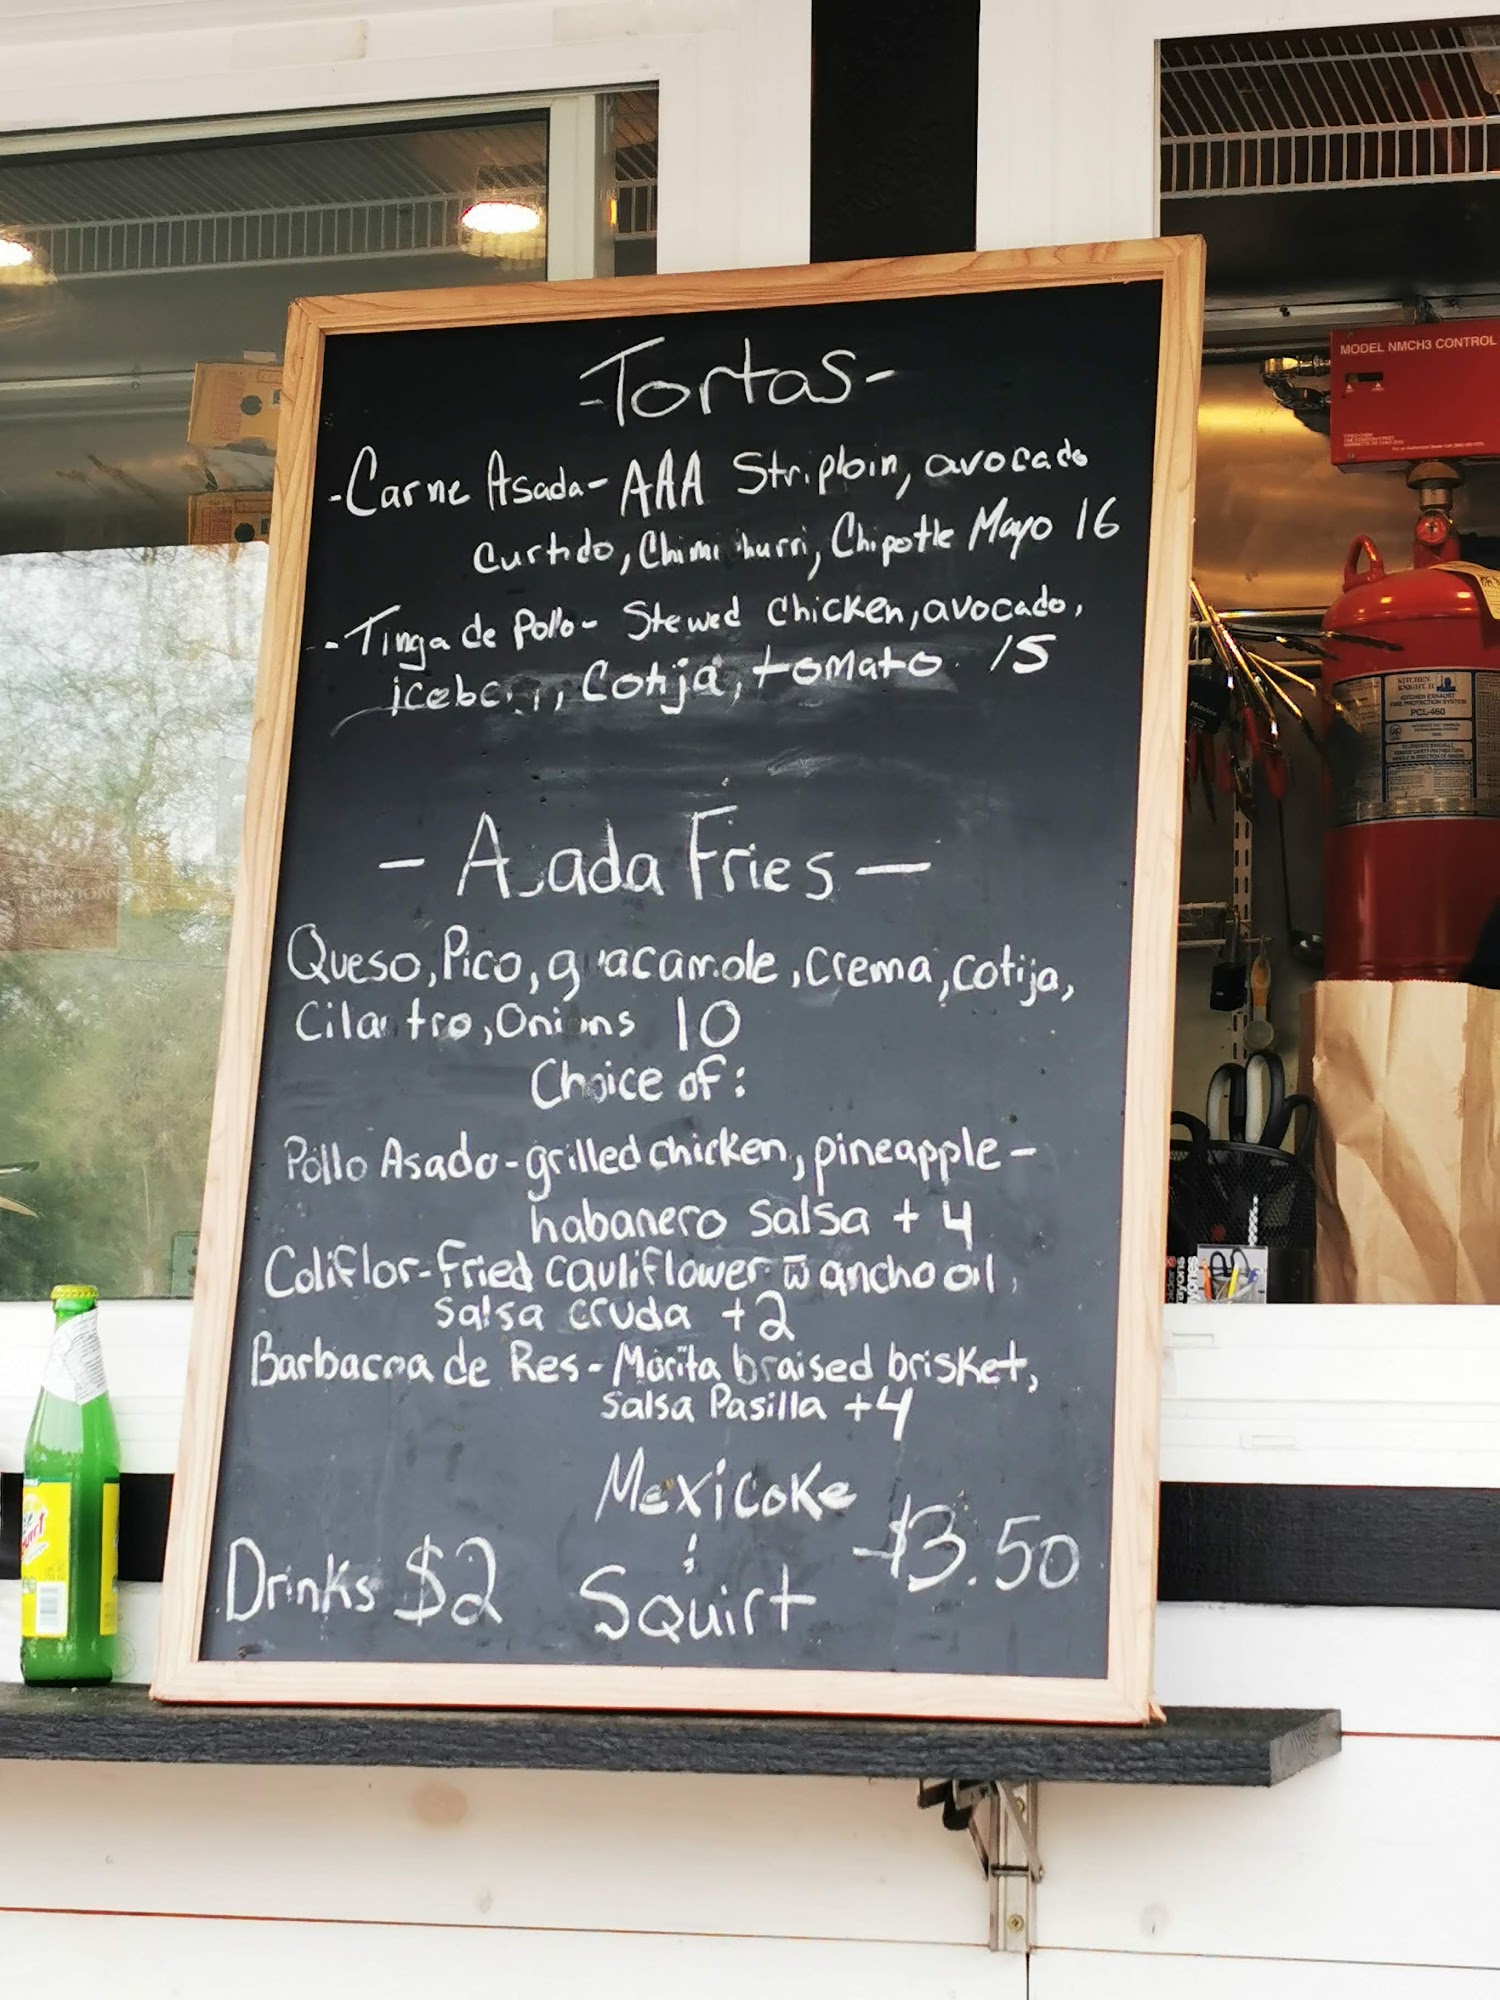 -Tortas-
-Carne Asada- AAA Striploin, avocado
Curtido, Chimi hurri, Chipotle Mayo 16
-Tinga de Pollo- Stewed Chicken, avocado,
iceberg, Cotija, tomato. 15
- Asada Fries -
Queso, Pico, guacamole, Crema, cotija,
Cilantro, Onions 10
Choice of:
Pollo Asado-grilled chicken, pineapple-
habanero Salsa + 4
Coliflor-Fried cauliflower w̄ ancho oil,
salsa cruda +2
Barbacoa de Res - Morita braised brisket,
Salsa Pasilla +4
Mexicoke
Drinks $2 Squirt $3.50
MODEL NMCH3 CONTROL
KITCHEN
KNIGHT II
PCL-460